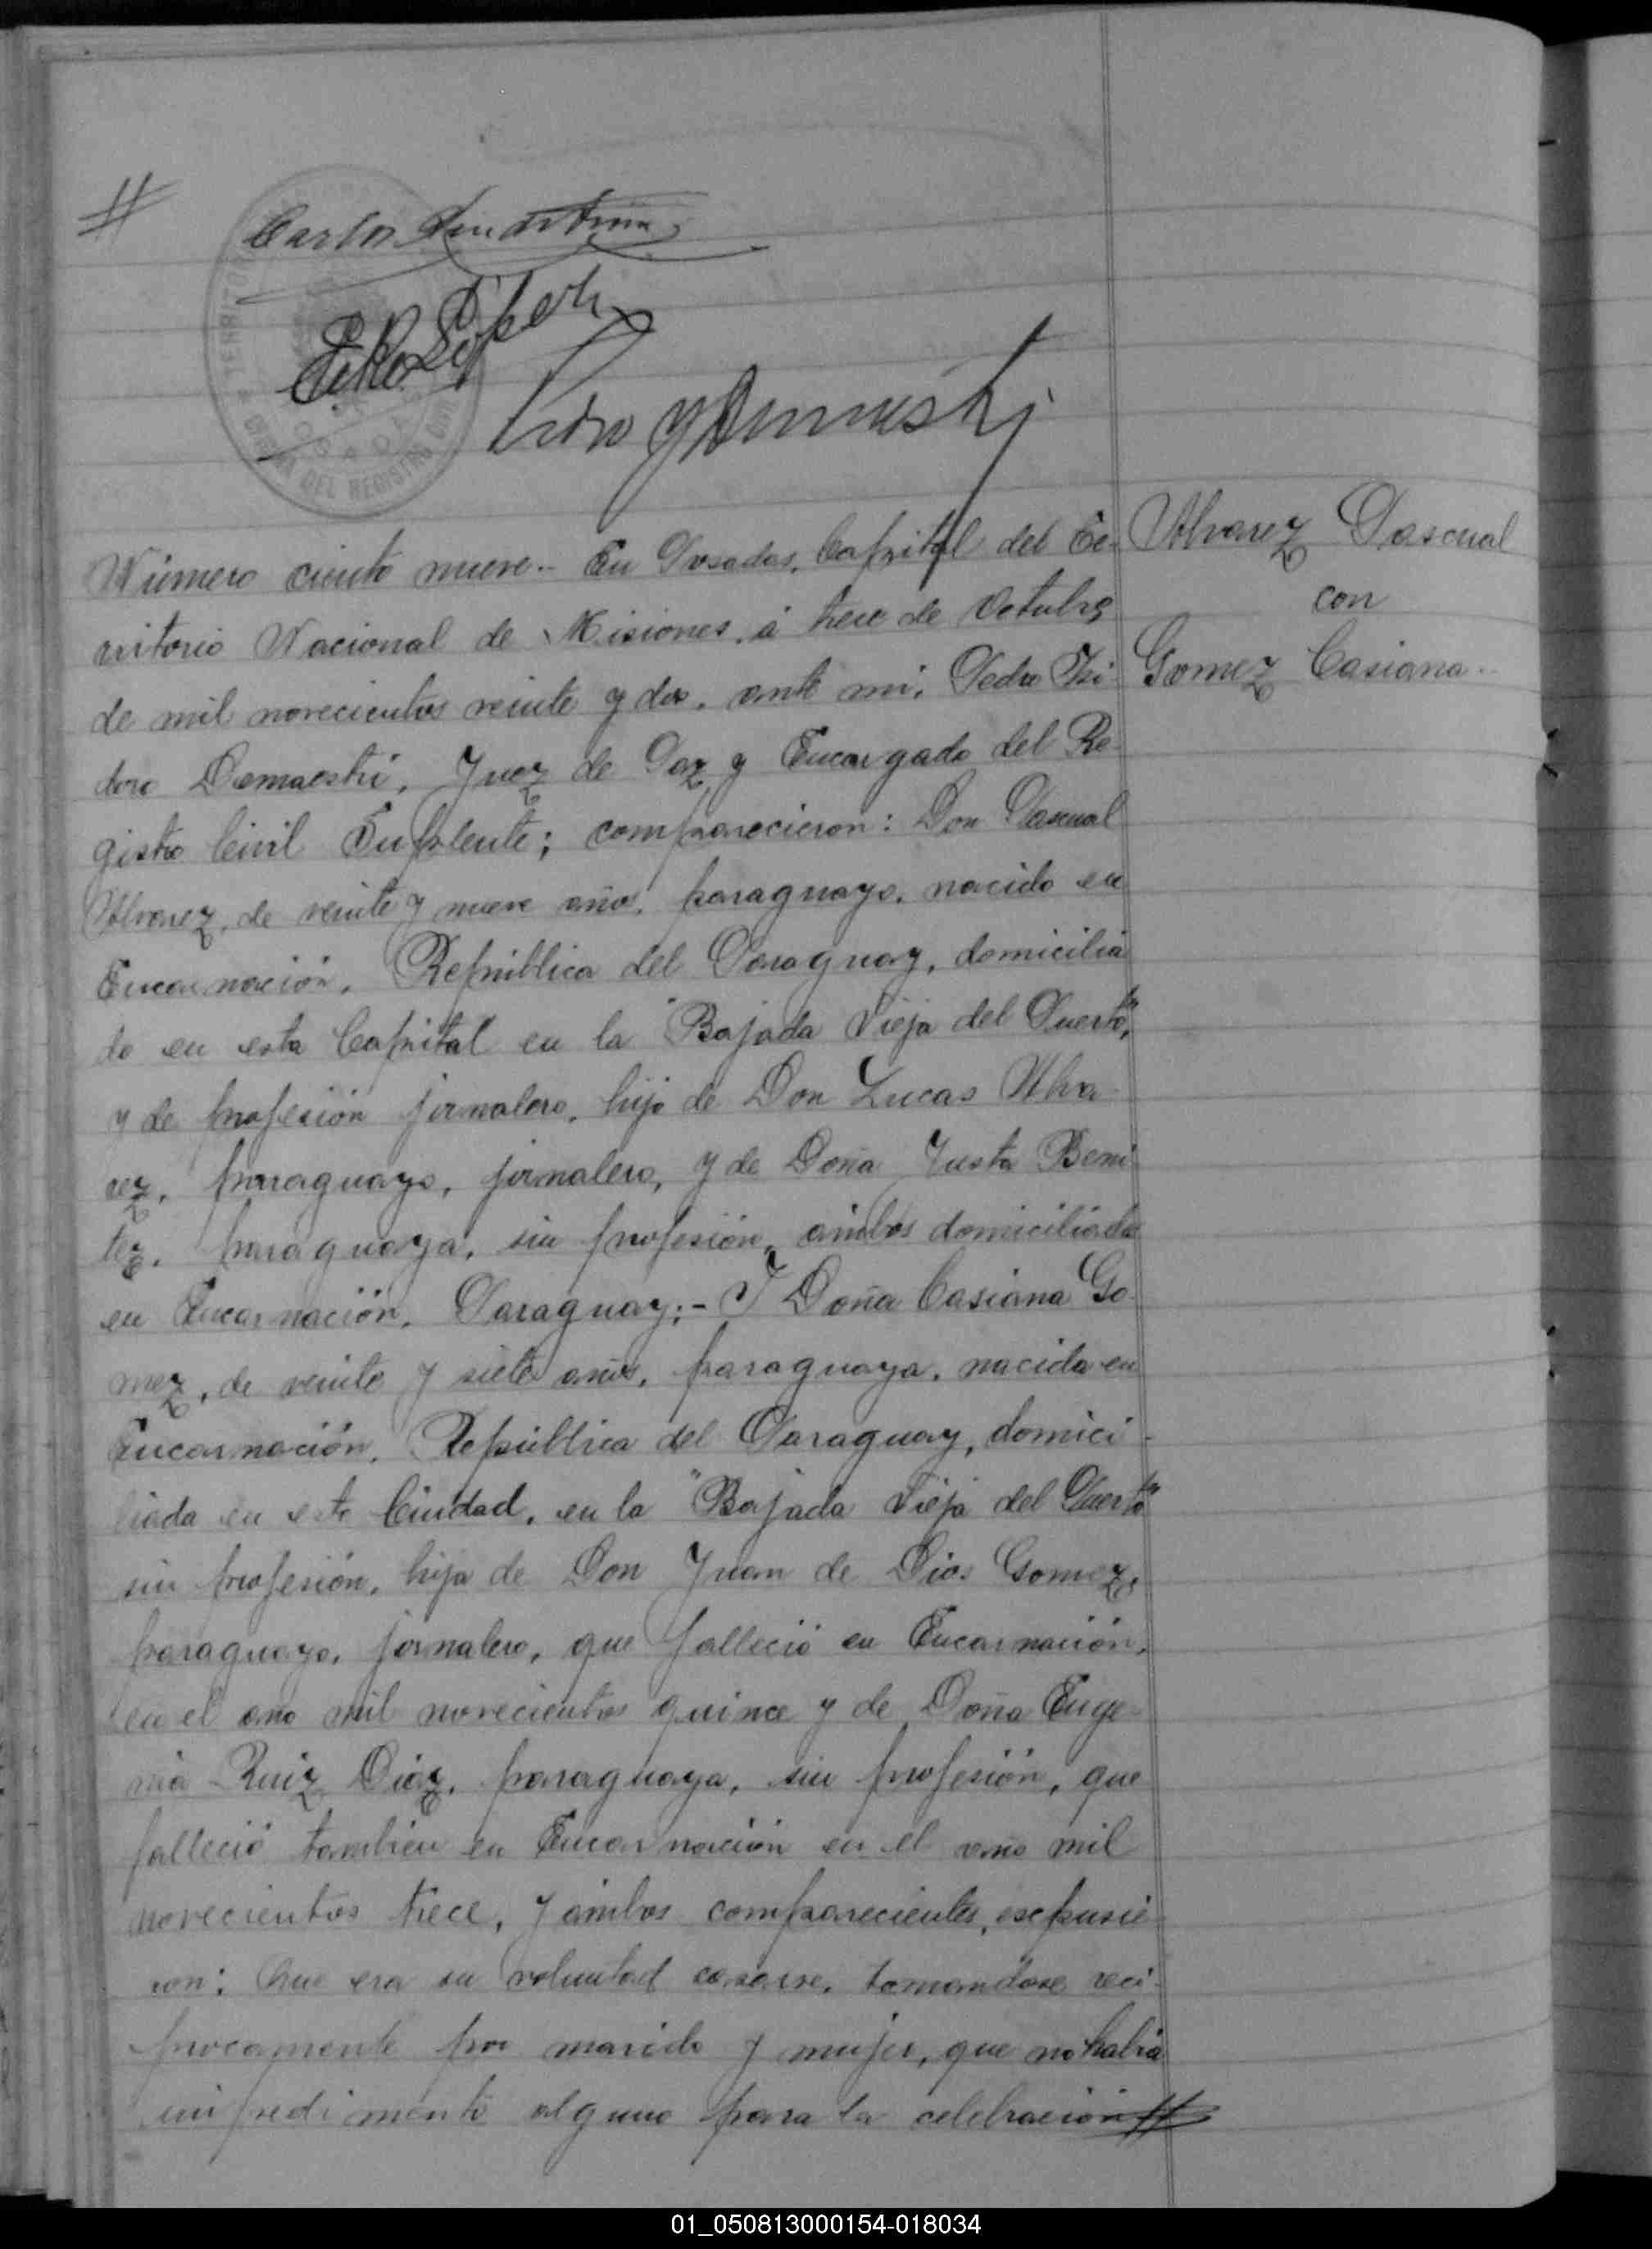 #
Carlos
Número ciento nueve.- En Posadas, Capital del Te-
rritorio Nacional de Misiones, á trece de Octubre
de mil novecientos veinte y dos, ante mi, Pedro Isi-
doro Demaestri, Juez de Paz y Encargado del Re-
gistro Civil Suplente; comparecieron: Don Pascual
Alvarez, de veinte y nueve años, paraguayo, nacido en
Encarnación, República del Paraguay, domicilia
do en esta Capital en la "Bajada Vieja del Puerto",
y de profesión jornalero, hijo de Don Lucas Alva-
rez, paraguayo, jornalero, y de Doña Justa Beni
tez, paraguaya, sin profesión, ambos domiciliados
en Encarnación, Paraguay;- Y Doña Casiana Go-
mez, de veinte y siete años, paraguaya, nacida en
Encarnación, República del Paraguay, domici-
liada en esta Ciudad, en la "Bajada Vieja del Puerto"
sin profesión, hija de Don Juan de Dios Gomez,
paraguayo, jornalero, que falleció en Encarnación,
en el año mil novecientos quince y de Doña Euge-
nia Ruiz Diaz, paraguaya, sin profesión, que
falleció tambien en Encarnación en el año mil
novecientos trece, y ambos comparecientes, expusie-
ron: Que era su voluntad casarse, tomandose reci-
procamente por marido y mujer, que no habia
impedimento alguno para la celebración #
Alvarez Pascual
con
Gomez Casiana..
OFICINA DEL REGISTRO CIVIL
01_050813000154-018034